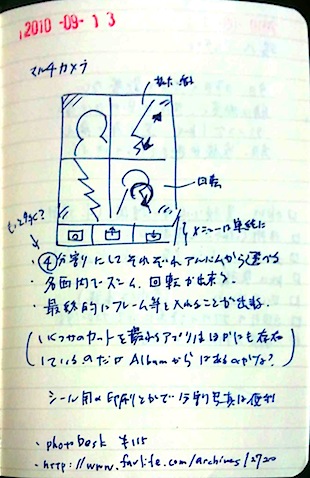 2010-09-13
マルチカメラ
拡大、縮小
回転
メニューは単純に
いくつがいい?
・④分割にしてそれぞれアルバムから選べる
・各画面内でズーム、回転が出来る。
・最終的にフレーム等を入れることが出来る。
(いくつかのカットを撮れるアプリはほかにも存在
しているのだが Albumから はあるのかな?)
シール用の印刷とかで 分割写真は便利
・photo desk ¥115
・http://www.favlife.com/archives/2720